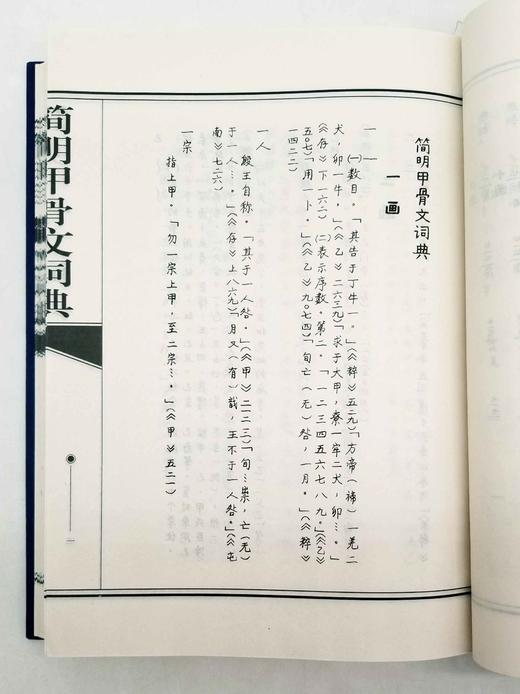 简明甲骨文词典
一画
一
㈠数目。「其告于丁牛一。」(《粹》五二九)「方帝(禘)一羌二
犬,卯一牛。」(《乙》二六三九)「求于大甲,尞一牢二犬,卯…。」
(《存》下一六二) ㈡表示序数。第二。「一二三四五六七八九。」(《乙》
五〇七)「用一卜。」(《乙》九〇七四)「旬亡(无)咎,一月。」(《粹》
一四二二)
一人
殷王自称。「其于一人咎。」(《甲》二一二三)「旬…祟,亡(无)
于一人…。」(《存》上八六九)「月又(有)戠,王不于一人咎。」(《屯
南》七二六)
一宗
指上甲。「勿一宗上甲,至二宗…。」(《甲》五二一)
简明甲骨文词典